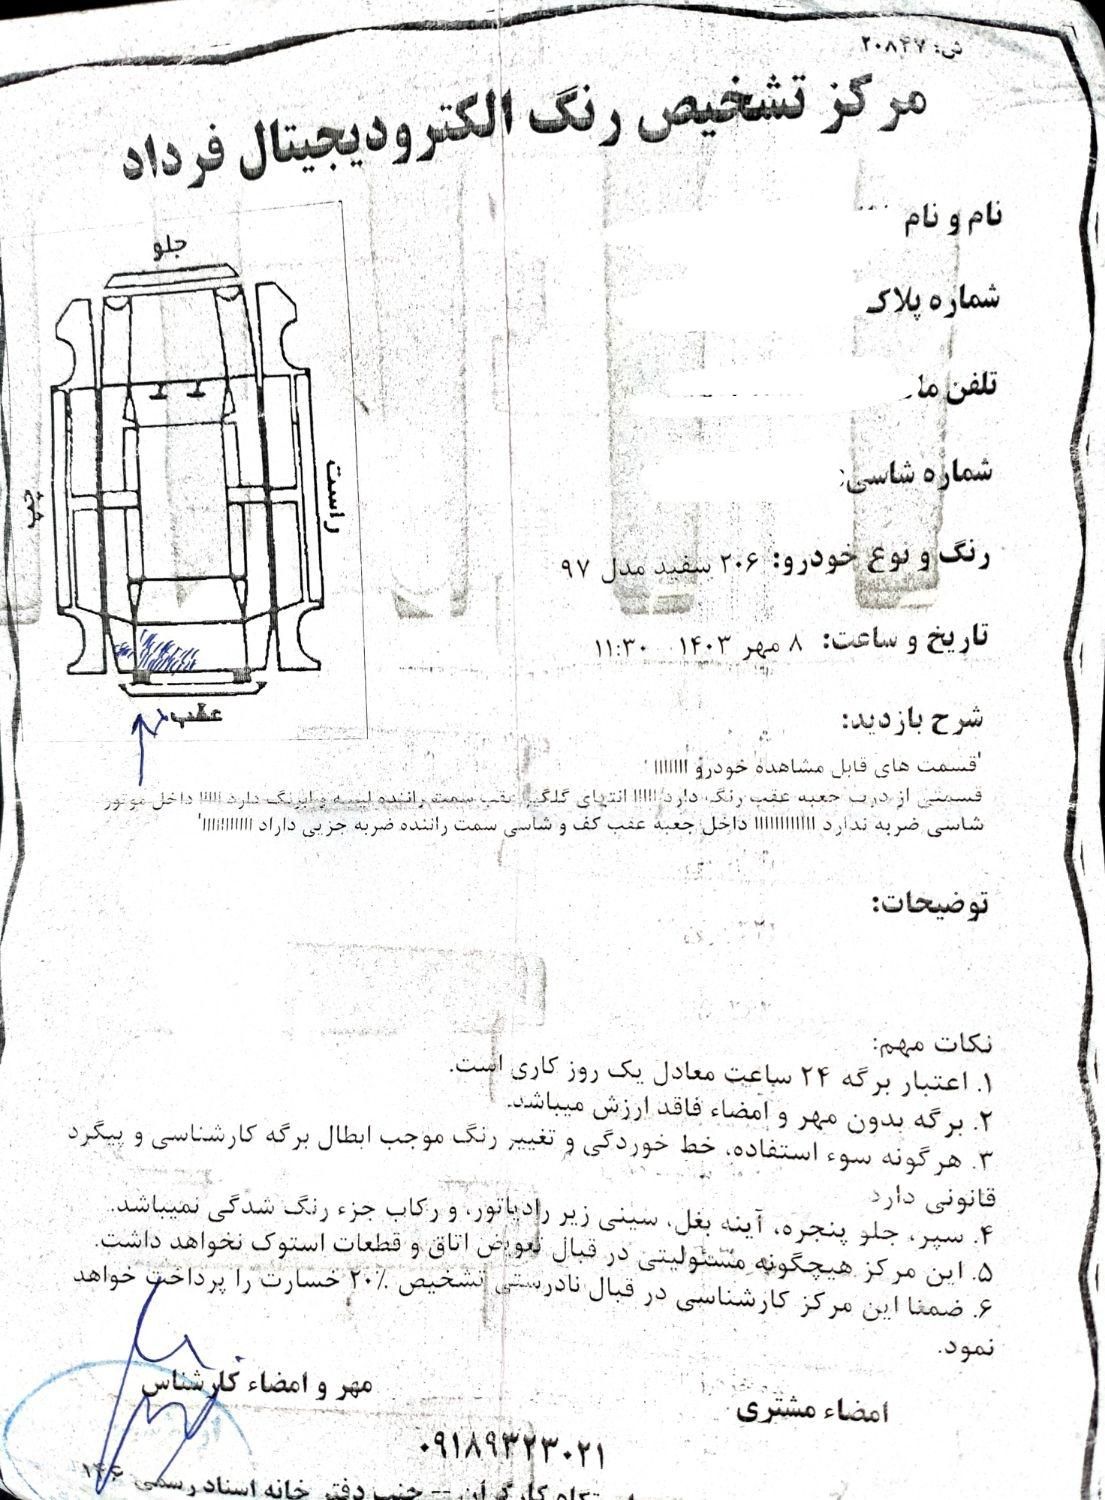 ش: ۲۰۸۴۷
مرکز تشخیص رنگ الکترودیجیتال فرداد
نام و نام
شماره پلاک
تلفن
شماره شاسی:
رنگ و نوع خودرو: ۲۰۶ سفید مدل ۹۷
تاریخ و ساعت: ۸ مهر ۱۴۰۳ ۱۱:۳۰
جلو
چپ
راست
عقب
شرح بازدید:
'قسمت های قابل مشاهده خودرو ااااااا '
قسمتی از درب جعبه عقب رنگ دارد ااااا انتهای گلگیر عقب سمت راننده لیسه و ابرنگ دارد ااااا داخل موتور
شاسی ضربه ندارد ااااااااااااا داخل جعبه عقب کف و شاسی سمت راننده ضربه جزیی داراد ااااااااااا'
توضیحات:
نکات مهم:
۱. اعتبار برگه ۲۴ ساعت معادل یک روز کاری است.
۲. برگه بدون مهر و امضاء فاقد ارزش میباشد.
۳. هرگونه سوء استفاده، خط خوردگی و تغییر رنگ موجب ابطال برگه کارشناسی و پیگرد
قانونی دارد
۴. سپر، جلو پنجره، آینه بغل، سینی زیر رادیاتور، و رکاب جزء رنگ شدگی نمیباشد.
۵. این مرکز هیچگونه مسئولیتی در قبال تعویض اتاق و قطعات استوک نخواهد داشت.
۶. ضمنا این مرکز کارشناسی در قبال نادرستی تشخیص ۲۰٪ خسارت را پرداخت خواهد
نمود.
مهر و امضاء کارشناس
امضاء مشتری
۰۹۱۸۹۳۲۳۰۲۱
کارگران -- جنب دفتر خانه اسناد رسمی ۱۴۶